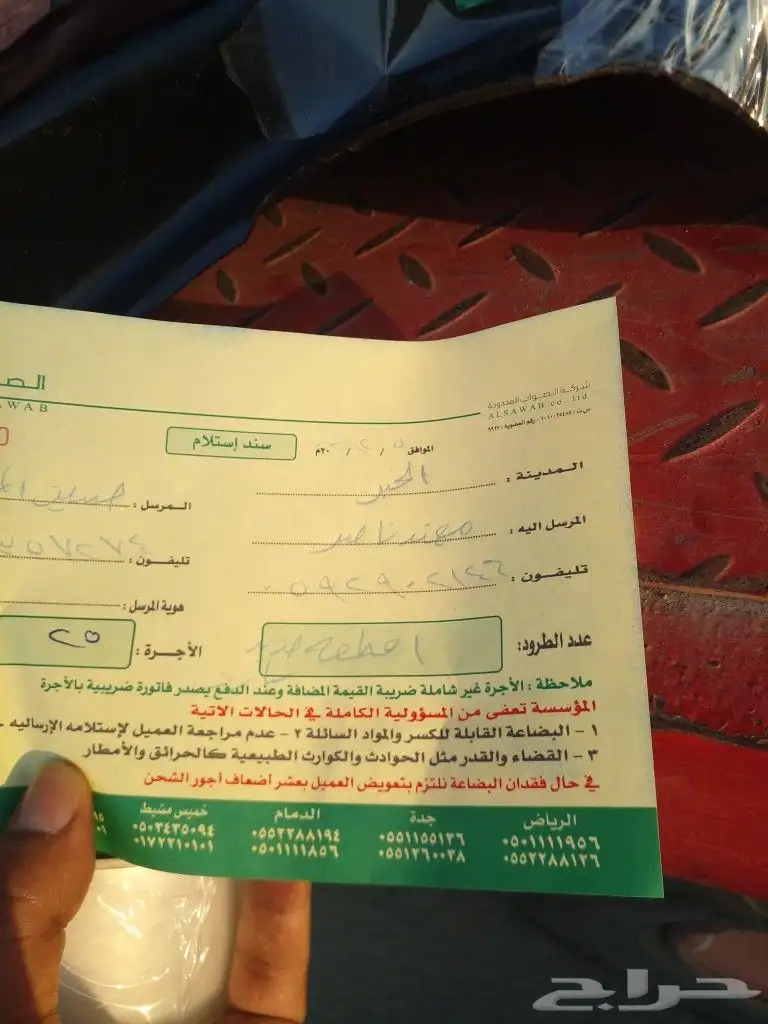 الصـ
شركة الصواب المحدودة
AWAB
ALSAWAB co. ltd
سند إستلام
الموافق / / ٢٠م
المدينة : الخبر
المرسل :
المرسل اليه : مهند ناصر
تليفـون :
تليفـون : ٠٥٩٢٩٠٢١٤٦
هوية المرسل :
عدد الطرود: ١ قطعه
الأجـرة : ٢٥
ملاحظة : الأجرة غير شاملة ضريبة القيمة المضافة وعند الدفع يصدر فاتورة ضريبية بالأجرة
المؤسسة تعفى من المسؤولية الكاملة في الحالات الاتية
١ - البضاعة القابلة للكسر والمواد السائلة ٢ - عدم مراجعة العميل لإستلامه الإرساليه
٣ - القضاء والقدر مثل الحوادث والكوارث الطبيعية كالحرائق والأمطار
في حال فقدان البضاعة نلتزم بتعويض العميل بعشر أضعاف أجور الشحن
الرياض جدة الدمام خميس مشيط
٠٥٠١١١١٩٥٦ ٠٥٥١١٥٥١٣٦ ٠٥٥٢٢٨٨١٩٤ ٠٥٠٣٤٣٥٠٩٤
٠٥٥٢٢٨٨١٢٦ ٠٥٥١٢٦٠٠٣٨ ٠٥٠١١١١٨٥٦ ٠١٧٢٢١٠١٠١
حراج